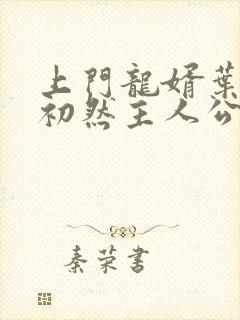 上門龍婿葉
初然主人公
秦荣書